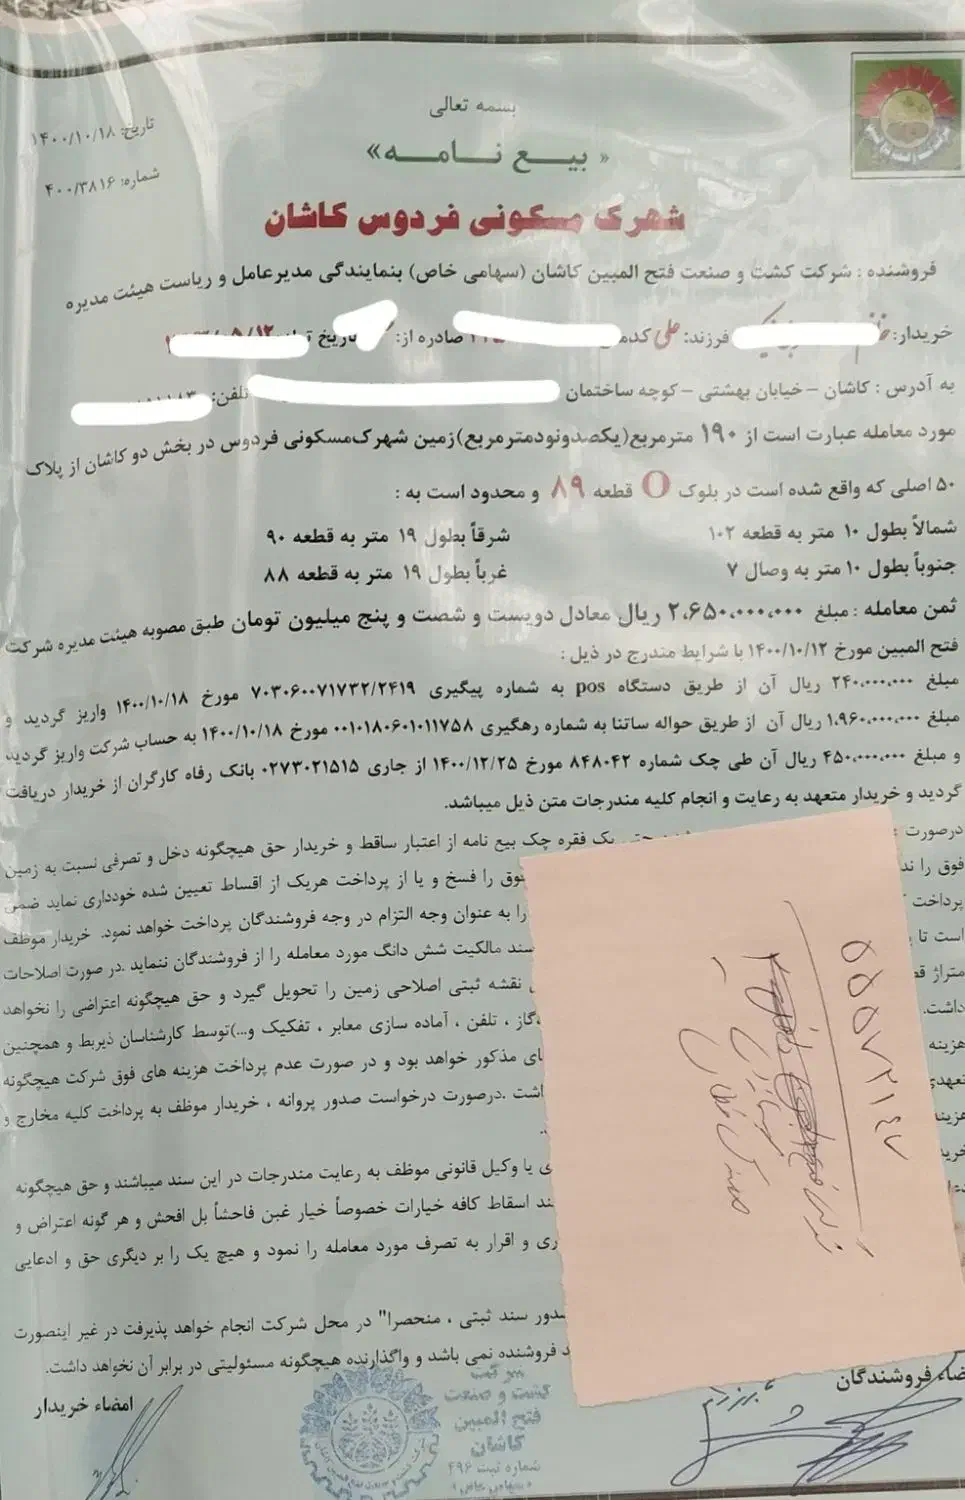 بسمه تعالی
« بیع نامه»
تاریخ: ۱۴۰۰/۱۰/۱۸
شماره: ۴۰۰/۳۸۱۶
شهرک مسکونی فردوس کاشان
فروشنده : شرکت کشت و صنعت فتح المبین کاشان (سهامی خاص) بنمایندگی مدیرعامل و ریاست هیئت مدیره
خریدار: فرزند: علی صادره از: تاریخ
به آدرس : کاشان – خیابان بهشتی – کوچه ساختمان تلفن:
مورد معامله عبارت است از ۱۹۰ مترمربع(یکصدونودمترمربع)زمین شهرک‌مسکونی فردوس در بخش دو کاشان از پلاک
۵۰ اصلی که واقع شده است در بلوک O قطعه ۸۹ و محدود است به :
شمالاً بطول ۱۰ متر به قطعه ۱۰۲ شرقاً بطول ۱۹ متر به قطعه ۹۰
جنوباً بطول ۱۰ متر به وصال ۷ غرباً بطول ۱۹ متر به قطعه ۸۸
ثمن معامله : مبلغ ۲،۶۵۰،۰۰۰،۰۰۰ ریال معادل دویست و شصت و پنج میلیون تومان طبق مصوبه هیئت مدیره شرکت
فتح المبین مورخ ۱۴۰۰/۱۰/۱۲ با شرایط مندرج در ذیل :
مبلغ ۲۴۰،۰۰۰،۰۰۰ ریال آن از طریق دستگاه pos به شماره پیگیری ۷۰۳۰۶۰۰۷۱۷۳۲/۲۴۱۹ مورخ ۱۴۰۰/۱۰/۱۸ واریز گردید و
مبلغ ۱،۹۶۰،۰۰۰،۰۰۰ ریال آن از طریق حواله ساتنا به شماره رهگیری ۰۰۱۰۱۸۰۶۰۱۰۱۱۷۵۸ مورخ ۱۴۰۰/۱۰/۱۸ به حساب شرکت واریز گردید
و مبلغ ۴۵۰،۰۰۰،۰۰۰ ریال آن طی چک شماره ۸۴۸۰۴۲ مورخ ۱۴۰۰/۱۲/۲۵ از جاری ۰۲۷۳۰۲۱۵۱۵ بانک رفاه کارگران از خریدار دریافت
گردید و خریدار متعهد به رعایت و انجام کلیه مندرجات متن ذیل میباشد.
درصورت حتی یک فقره چک بیع نامه از اعتبار ساقط و خریدار حق هیچگونه دخل و تصرفی نسبت به زمین
فوق را فوق را فسخ و یا از پرداخت هریک از اقساط تعیین شده خودداری نماید ضمن
پرداخت را به عنوان وجه التزام در وجه فروشندگان پرداخت خواهد نمود. خریدار موظف
است تا سند مالکیت شش دانگ مورد معامله را از فروشندگان ننماید .در صورت اصلاحات
متراژ نقشه ثبتی اصلاحی زمین را تحویل گیرد و حق هیچگونه اعتراضی را نخواهد
داشت. گاز ، تلفن ، آماده سازی معابر ، تفکیک و...)توسط کارشناسان ذیربط و همچنین
هزینه مذکور خواهد بود و در صورت عدم پرداخت هزینه های فوق شرکت هیچگونه
تعهدی .درصورت درخواست صدور پروانه ، خریدار موظف به پرداخت کلیه مخارج و
هزینه
یا وکیل قانونی موظف به رعایت مندرجات در این سند میباشند و حق هیچگونه
اسقاط کافه خیارات خصوصاً خیار غبن فاحشاً بل افحش و هر گونه اعتراض و
و اقرار به تصرف مورد معامله را نمود و هیچ یک را بر دیگری حق و ادعایی
صدور سند ثبتی ، منحصرا" در محل شرکت انجام خواهد پذیرفت در غیر اینصورت
فروشنده نمی باشد و واگذارنده هیچگونه مسئولیتی در برابر آن نخواهد داشت.
امضاء فروشندگان
امضاء خریدار
شرکت
کشت و صنعت
فتح المبین
کاشان
شماره ثبت ۴۹۶
(سهامی خاص)
۵۵۵۷۲۱۴۷